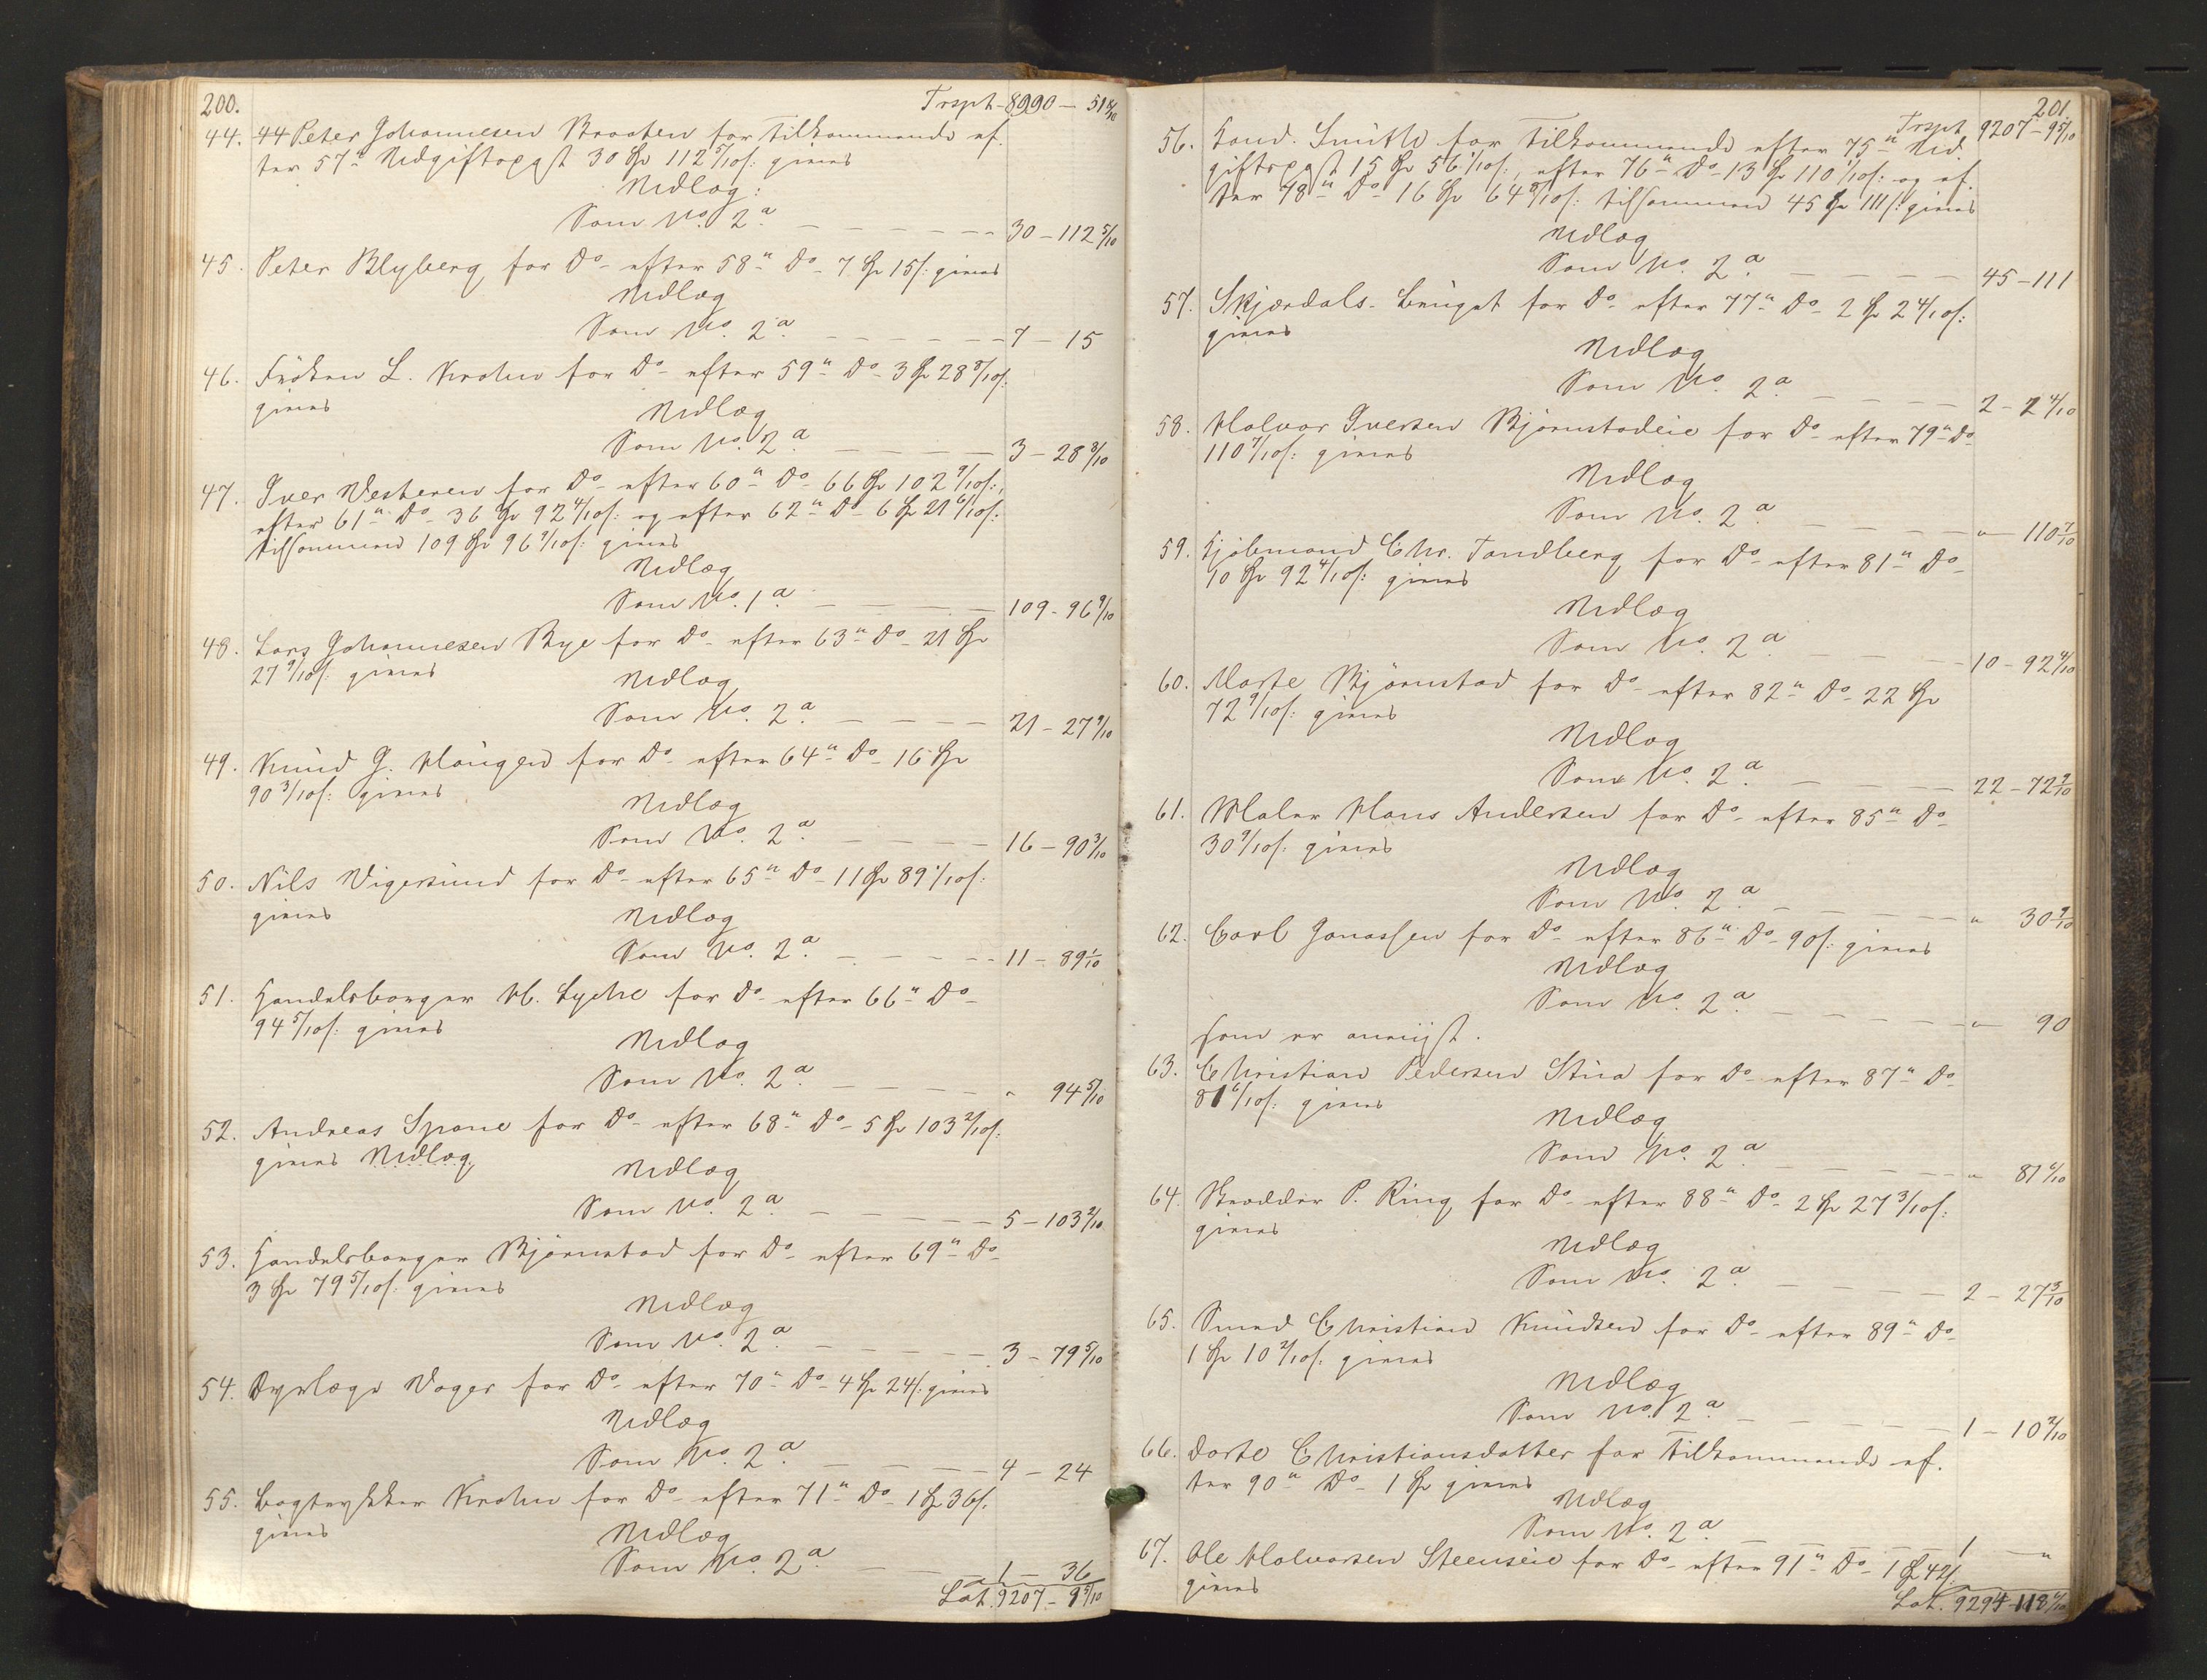 200.
Trspt 8990 - 51 8/10
44. 44 Peter Johannesen Braaten for Tilkommende ef-
ter 57de Udgiftspost 30 Spd 112 5/10 s: gives
Udlæg:
Som No. 2a. 30 - 112 5/10
45. Peter Blyberg for Do efter 58de Do 7 Spd 15 s: gives
Udlæg
Som No. 2a. 7 - 15
46. Frøken L. Krohn for Do efter 59de Do 3 Spd 28 8/10 s:
gives
Udlæg
Som No. 2a. 3 - 28 8/10
47. Iver Vesteren for Do efter 60de Do 66 Spd 102 9/10 s:,
efter 61de Do 36 Spd 92 4/10 s: og efter 62de Do 6 Spd 21 6/10 s:
tilsammen 109 Spd 96 9/10 s: gives
Udlæg
Som No. 1a. 109 - 96 9/10
48. Lars Johannesen Bye for Do efter 63de Do 21 Spd
27 9/10 s: gives
Udlæg
Som No. 2a. 21 - 27 9/10
49. Knud G. Haugen for Do efter 64de Do 16 Spd
90 3/10 s: gives
Udlæg
Som No. 2a. 16 - 90 3/10
50. Nils Vigersund for Do efter 65de Do 11 Spd 89 1/10 s:
gives
Udlæg
Som No. 2a. 11 - 89 1/10
51. Handelsborger H. Lyche for Do efter 66de Do
94 5/10 s: gives
Udlæg
Som No. 2a. " 94 5/10
52. Andreas Spone for Do efter 68de Do 5 Spd 103 2/10 s:
gives Udlæg.
Udlæg
Som No. 2a. 5 - 103 2/10
53. Handelsborger Bjørnstad for Do efter 69de Do
3 Spd 79 5/10 s: gives
Udlæg
Som No. 2a. 3 - 79 5/10
54. Dyrlæge Voger for Do efter 70de Do 4 Spd 24 s: gives
Udlæg
Som No. 2a. 4 - 24
55. Bogtrykker Krohn for Do efter 71de Do 1 Spd 36 s:
gives
Udlæg
Som No. 2a. 1 - 36
Lat. 9207 - 9 5/10
201.
Trspt 9207 - 9 5/10
56. Kand. Smith for Tilkommende efter 75de Ud-
giftspost 15 Spd 56 1/10 s:, efter 76de Do 13 Spd 110 1/10 s: og ef-
ter 78de Do 16 Spd 64 8/10 s: tilsammen 45 Spd 111 s: gives
Udlæg
Som No. 2a. 45 - 111
57. Skjærdals Bruget for Do efter 77de Do 2 Spd 2 4/10 s:
gives
Udlæg
Som No. 2a. 2 - 2 4/10
58. Halvor Iversen Bjørnstadeie for Do efter 79de Do
110 7/10 s: gives
Udlæg
Som No. 2a. " - 110 7/10
59. Kjøbmand Chr. Tandberg for Do efter 81de Do
10 Spd 92 4/10 s: gives
Udlæg
Som No. 2a. 10 - 92 4/10
60. Marte Bjørnstad for Do efter 82de Do 22 Spd
72 9/10 s: gives
Udlæg
Som No. 2a. 22 - 72 9/10
61. Maler Hans Andersen for Do efter 85de Do
30 9/10 s: gives
Udlæg
Som No. 2a. " 30 9/10
62. Carl Jonassen for Do efter 86de Do 90 s: gives
Udlæg
Som No. 2a. " - 90
som er
63. Christian Pedersen Stua for Do efter 87de Do
81 6/10 s: gives
Udlæg
Som No. 2a. " 81 6/10
64. Skrædder P. Ring for Do efter 88de Do 2 Spd 27 3/10 s:
gives
Udlæg
Som No. 2a. 2 - 27 3/10
65. Smed Christian Knudsen for Do efter 89de Do
1 Spd 10 2/10 s: gives
Udlæg
Som No. 2a. 1 - 10 2/10
66. Dorte Christiansdatter for Tilkommende ef-
ter 90de Do 1 Spd gives
Udlæg
Som No. 2a. 1 - "
67. Ole Halvorsen Steenseie for Do efter 91de Do 1 Spd 42 s:
gives
Lat. 9294 - 118 6/10